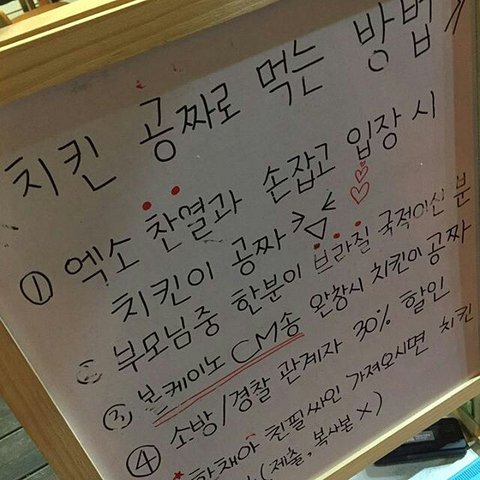 치킨 공짜로 먹는 방법
① 엑소 찬열과 손잡고 입장 시
치킨이 공짜
② 부모님중 한분이 브라질 국적이신 분
③ 본케이노 CM송 완창시 치킨이 공짜
④ 소방/경찰 관계자 30% 할인
한채아 친필싸인 가져오시면 치킨
(제출, 복사본 X)